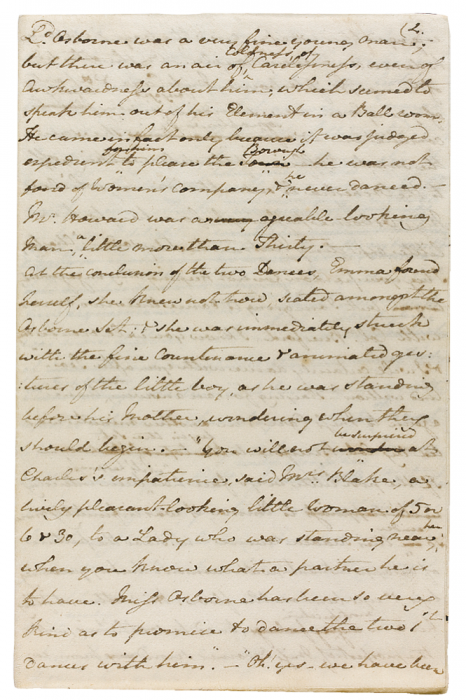 (2.
Ld. Osborne was a very fine young man;
but there was an air of Coldness, of Carelessness, even of
Awkwardness about him, which seemed to
speak him out of his Element in a Ball room.
He came in fact only because it was judged
expedient for him to please the Borough - he was not
fond of Women's company, & he never danced. -
Mr. Howard was an agreable-looking
Man, a little more than Thirty. -
At the conclusion of the two Dances, Emma found
herself, she knew not how, seated amongst the
Osborne Set; & she was immediately struck
with the fine Countenance & animated ges:
:tures of the little boy, as he was standing
before his Mother, wondering when they
should begin. - "You will not be surprised at
Charles's impatience, said Mrs. Blake, a
lively pleasant-looking little Woman of 5 or
6 & 30, to a Lady who was standing near her,
when you know what a partner he is
to have. Miss Osborne has been so very
kind as to promise to dance the two 1st
dances with him." - "Oh! yes - we have been